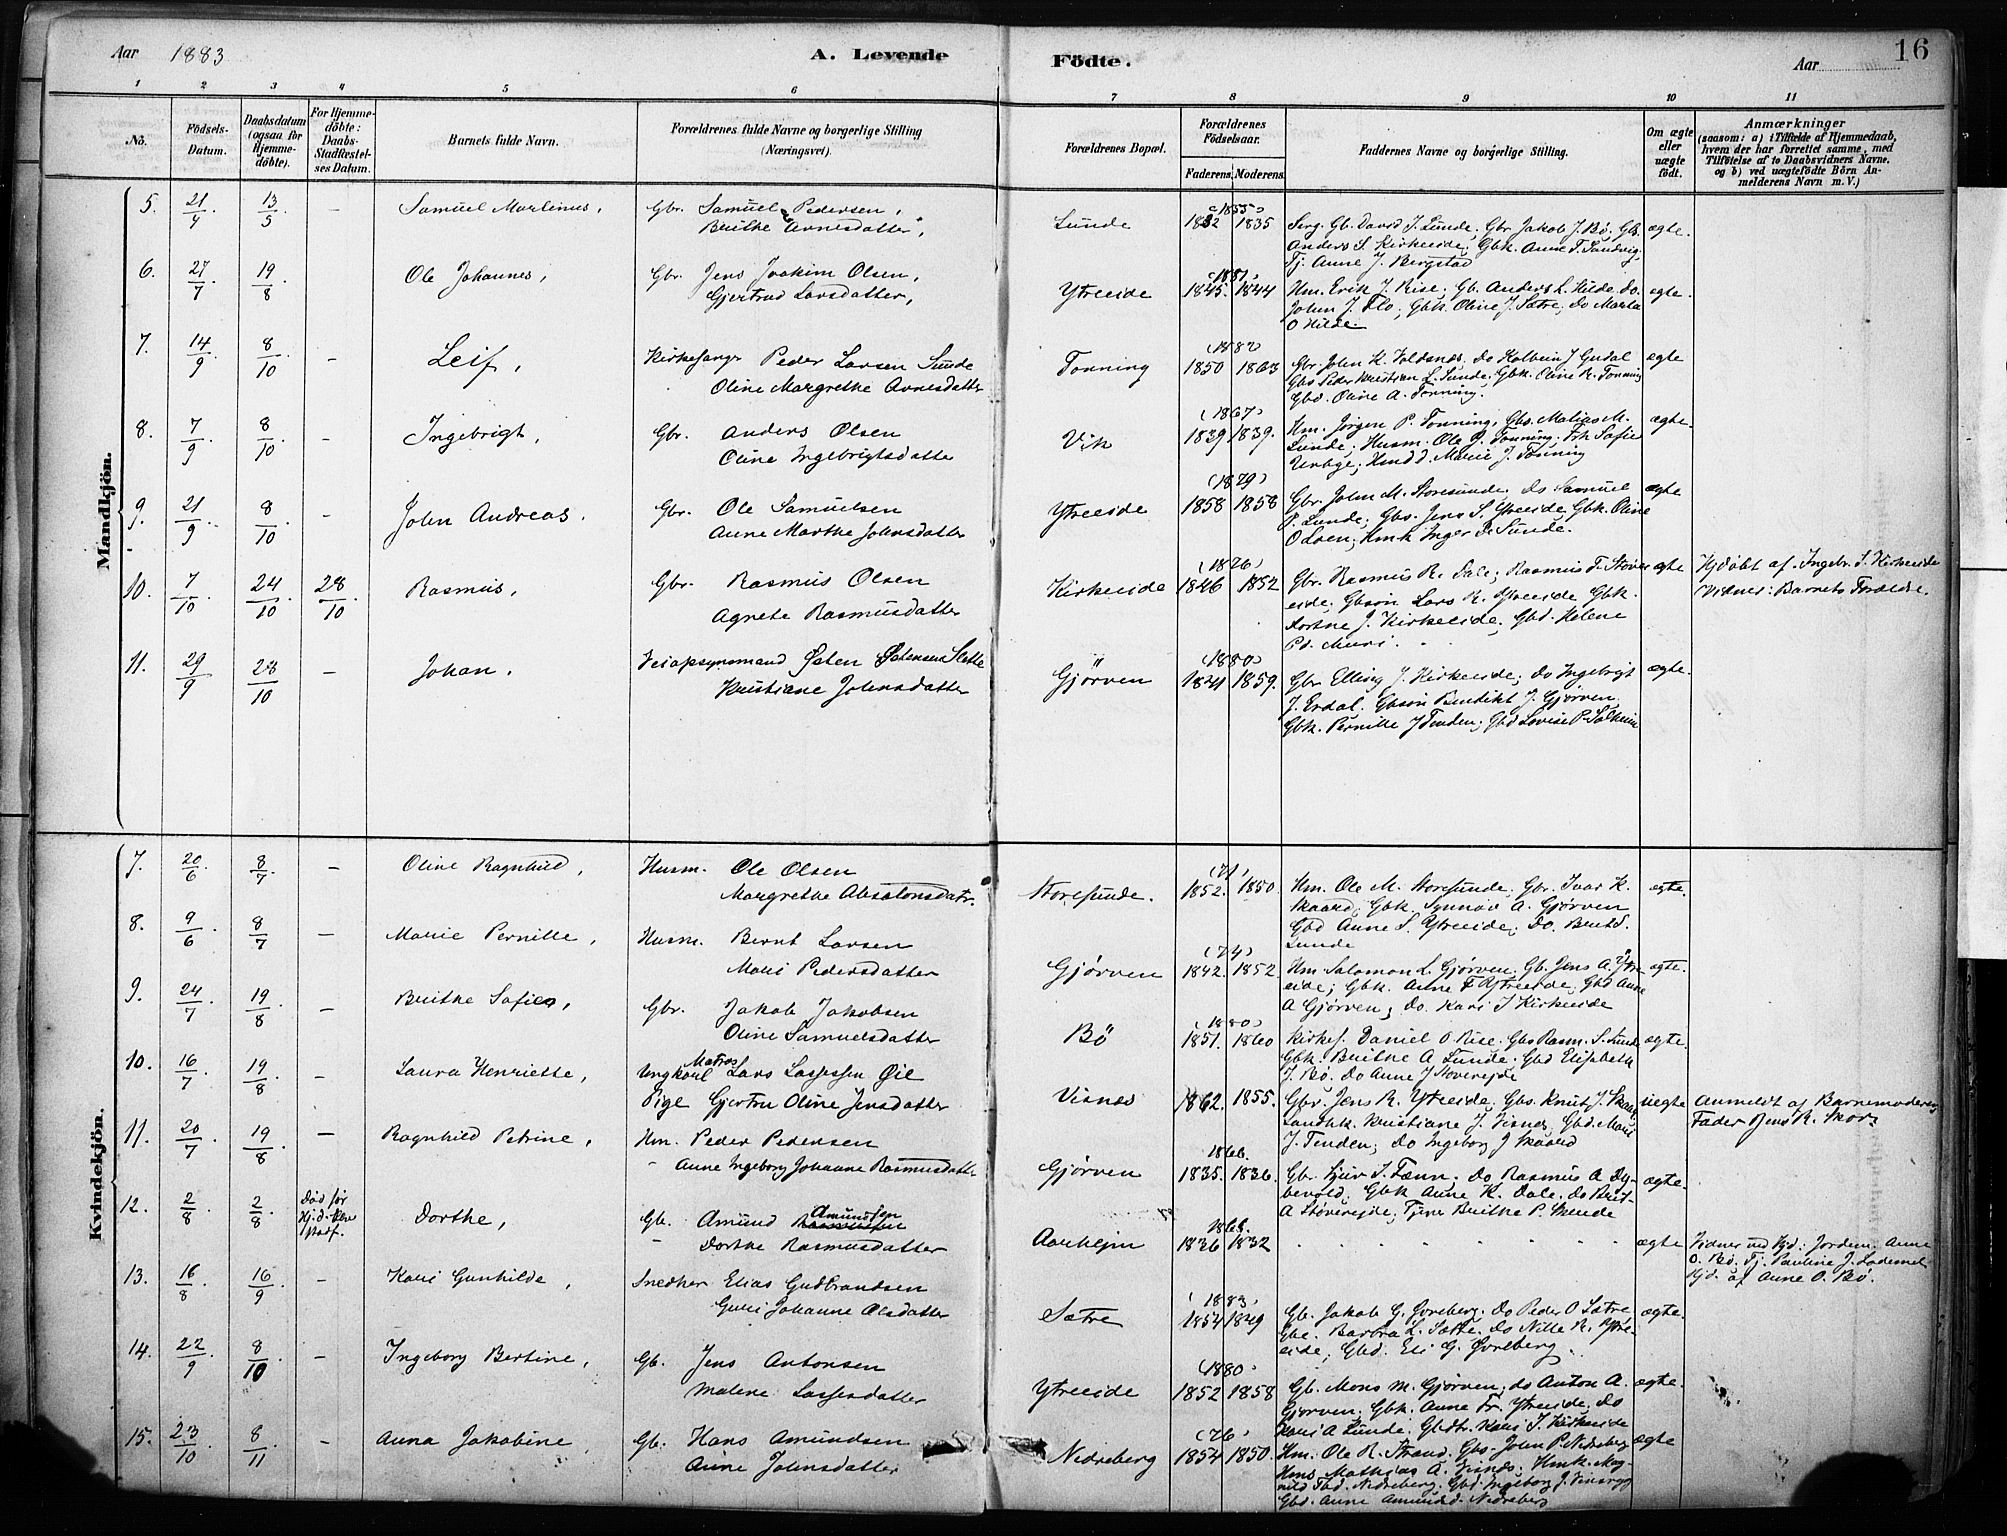 Aar 1883
A. Levende
Födte.
Aar
16
1 2 3 4 5 6 7 8 9 10 11
No. Födsels-Datum. Daabsdatum (ogsaa for Hjemme-döbte). For Hjemme-döbte: Daabs-Stadfæstel-ses Datum. Barnets fulde Navn. Forældrenes fulde Navne og borgerlige Stilling (Næringsvei). Forældrenes Bopæl. Forældrenes Födselsaar. Faderens. Moderens. Faddernes Navne og borgerlige Stilling. Om ægte eller uægte födt. Anmærkninger (saasom: a) i Tilfælde af Hjemmedaab, hvem der har forrettet samme, med Tilföielse af to Daabsvidners Navne. og b) ved uægtefödte Börn An-melderens Navn m. V.)
Mandkjön.
5. 21/4 13/5 - Samuel Martinus, Gbr. Samuel Pedersen, Lunde (1855) 1832 1835 Serg. Gb. David J. Lunde, Gbr Jakob J. Bø, Gb. ægte.
Brithe Arnesdatter, Anders S. Kirkeeide, Gbk. Anne T. Sandvig,
Tj. Anne J. Bergstad
6. 27/7 19/8 Ole Johannes, Gbr. Jens Joakim Olsen, Ytreeide (1881) 1845. 1844 Hm. Erik J. Rise, Gb. Anders L. Hilde, do. ægte.
Gjertrud Larsdatter, John J. Flo, Gbk. Oline J. Sætre, Do Marta
O Hilde.
7. 14/9 8/10 - Leif, Kirkesanger Peder Larsen Sunde Tonning (1882) 1850 1863 Gbr. John K. Voldsnæs. Do Kolbein J Gudal ægte
Oline Margrethe Arnesdatter Gbs Peder Kristian L. Sunde, Gbk. Oline R. Tonning
Gbd. Oline A. Tonning.
8. 7/9 8/10 - Ingebrigt, Gbr. Anders Olsen Vik (1867) 1839 1839. Hm. Jørgen P. Tonning, Gbs. Matias M. ægte.
Oline Ingebrigtsdatter Lunde, Husm. Ole J. Tonning, Frk Sofie
Hmd. Marie J. Tonning
9. 21/9 8/10 - John Andreas. Gbr. Ole Samuelsen Ytreeide (1879) 1858 1858 Gbr. John M. Storesunde, Do Samuel ægte
Anne Marthe Johnsdatter P. Lunde, Gbs. Jens S. Ytreeide, Gbk. Oline
Olsen, Hmk Inger Sunde.
10. 7/10 24/10 28/10 Rasmus, Gbr. Rasmus Olsen Kirkeeide (1876) 1846 1852 Gbr. Rasmus R. Dale, Rasmus T. Støver- ægte Hjdöbt af Ingebr. S. Kirkeeide
Agnete Rasmusdatter eide, Gbsøn Lars R. Ytreeide Gbk. Vidner: Barnets Forældre.
Dorthe J. Kirkeeide, Gbd. Helene
Pd. Muri.
11. 29/9 28/10 - Johan. Veiopsynsmand Østen Østensen Slette Gjörven (1880) 1841 1859. Gbr Elling J. Kirkeeide, Do Ingebrigt ægte.
Kristiane Johnsdatter J. Erdal. Gbsøn Bendikt J. Gjørven
Gbk. Pernille J Tenden, Gbd Lovise P. Solheim
Kvindekjön.
7. 20/6 8/7 - Oline Ragnhild, Husm. Ole Olsen Storesunde. (71) 1852. 1850. Hm. Ole M. Storesunde. Gbr. Ivar K. ægte.
Margrethe Absalonsdatr. Skaard, Gbk. Synnøv A. Gjørven
Gbd Anne S. Ytreeide, Do. Berit S.
Lunde
8. 9/6 8/7 - Marie Pernille, Husm. Bernt Larsen Gjørven (74) 1842. 1852. Hm Salomon L. Gjørven, Gb. Jens A. Ytre- ægte.
Mari Pedersdatter eide, Gbk. Anne F Ytreeide, Gbd Anne
A Gjørven, Do. Kari J Kirkeeide
9. 24/7 19/8 - Brithe Sofie, Gbr. Jakob Jakobsen Bö (1880) 1851. 1860 Kirkes. Daniel O Rise. Gbs Rasm. S. Lunde ægte.
Oline Samuelsdatter Gbk. Brithe A Lunde. Gbd Elisabeth
J. Bø. Do Anne J Støvereide
10. 16/7 19/8 - Laura Henriette, Ungkarl Matros Lars Lassesen Øie Visnæs 1862. 1855. Gbr. Jens R. Ytreeide, Gbs. Knut J. Skaar uegte Anmeldt af Barnemoderen
Pige Gjertru Oline Jensdatter Kristiane J. Visnes, Gbd. Mari Fader Jens R. Skor
J. Tenden, Do Ingeborg J Skaard
11. 20/7 19/8 - Ragnhild Petrine, Hm. Peder Pedersen Gjørven 1866. 1835. 1836. Gb. Sjur S. Do Rasmus A Dy- ægte.
- Anne Ingeborg Johanne Rasmusdatter bevold, Gbk Anne K. Dale, Do Brit
A Støvereide, Tjene Brithe P. Skeide
12. 2/8 2/8 Död før Hj.d. blev stadf. Dorthe, Gb. Amund Amundsen Aarhejm 1866. 1836 1832 . . . . . . ægte Vidner ved Hjd: Jordem. Anne
- Dorthe Rasmusdatter O. Bø. Tj. Pauline J. Lødemel
Hjd. af Anne O. Bø.
13. 16/8 16/9 - Kari Gunhilde, Snedker Elias Gudbrandsen Sætre (1883) 1854 1849 Gb. Jakob G. Øvreberg. Do Peder O Sætre ægte.
Guri Johanne Olsdatter Gbk. Barbra L. Sætre. Do Nille R. Ytre-
eide, Gbd. Eli G. Øvreberg.
14. 22/9 8/10 - Ingeborg Bertine, Gb. Jens Antonsen Ytreeide (1880) 1852 1858 Gb. Mons M. Gjørven, do Anton A. ægte.
Malene Lassesdatter Gjørven, Gbk. Anne Fr. Ytreeide, Do
Kari A Lunde, Gbdtr. Kari J. Kirkeeide
15. 23/10 8/11 - Anna Jakobine, Gb. Hans Amundsen Nedreberg (76) 1854 1850. Hm. Ole R. Strand. Gbs. John P. Nedreberg ægte
Anne Johnsdatter Hms Mathias A. Vinds. Hmk. Mag-
nild Tbd. Nedreberg. Gbd. Ingeborg J.
Gbd. Anne Amundsd. Nedreberg